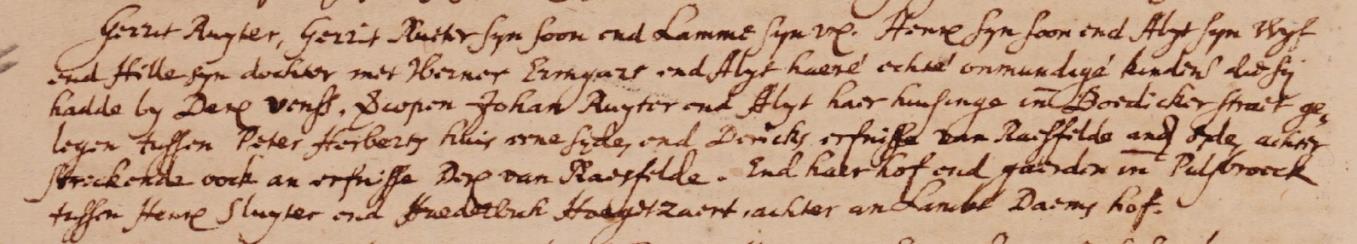 Gerrit Ruyter, Gerrit Ruiter syn soon end Lamme syn vx. Henr syn soon end Alyt syn wyf
end Hille syn dochter met Werner Ermgart end Alyt haere echte onmundige kinder die sy
hadde by Derx Venss. Vercopen Johan Ruyter end Alyt haer husinge in Boedickerstraet ge
legen tussen Peter Herberts huis eene syde, end Dericks erfnisse van Raesfelde and syde, achter
streckende oock an erfnisse Derx van Raesfelde. End haer hof end gaerden in Pulsbroeck
tussen Henr Sluyter end achter an Lambt Daems hof.